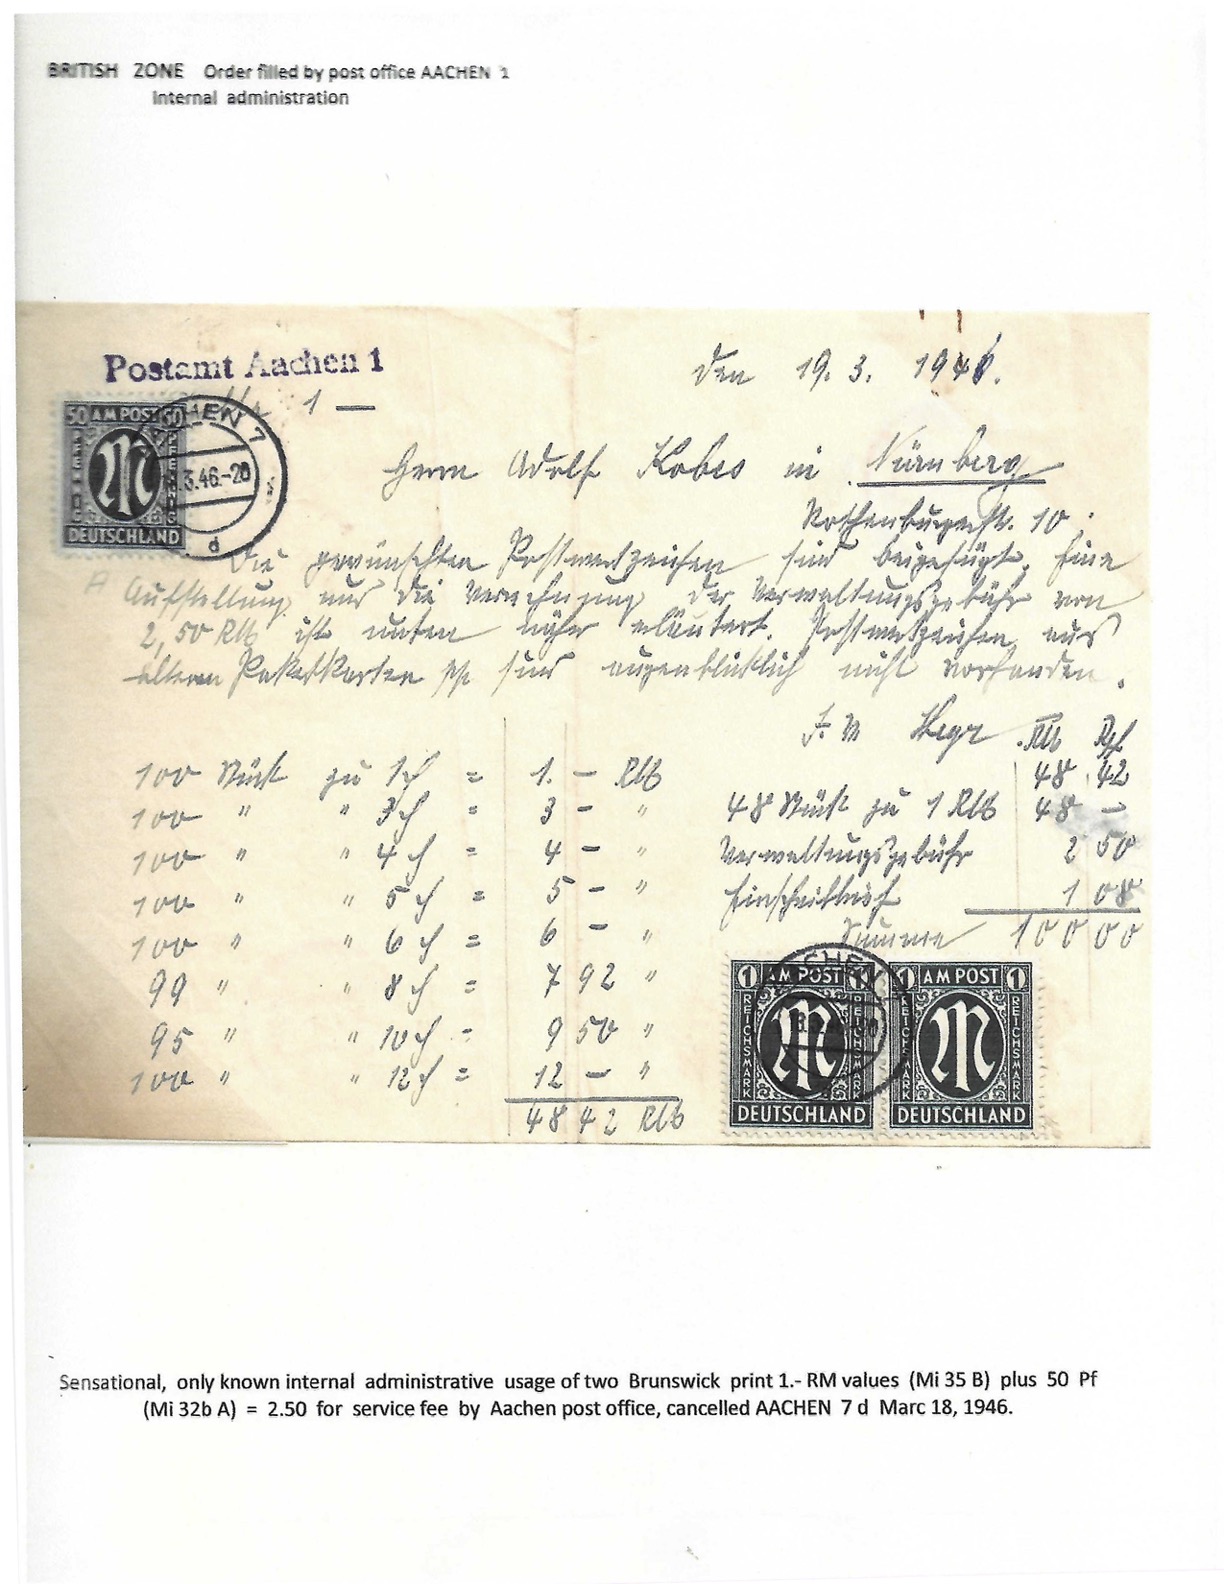 BRITISH ZONE Order filled by post office AACHEN 1
Internal administration
Postamt Aachen 1
1 —
den 19. 3. 1946.
50 AM POST 50
PFENNIG PFENNIG
DEUTSCHLAND
AACHEN 7
18.3.46.-20
d
Herrn Adolf Kobes in Nürnberg
Rothenburgerstr. 10.
Die gewünschten Postwertzeichen sind beigefügt. Eine
Aufstellung und die Verrechnung der Verwaltungsgebühr von
2,50 RM ist unten näher erläutert. Postwertzeichen aus
älteren Paketkarten pp sind augenblicklich nicht vorhanden.
RM Rpf
100 Stück zu 1 Pf = 1. — RM
48 42
100 " " 3 Pf = 3 — "
48 Stück zu 1 RM 48 —
100 " " 4 Pf = 4 — "
Verwaltungsgebühr 2 50
100 " " 5 Pf = 5 — "
Einschreibbrief 1 08
100 " " 6 Pf = 6 — "
Summe 100 00
99 " " 8 Pf = 7 92 "
95 " " 10 Pf = 9 50 "
100 " " 12 Pf = 12 — "
48 42 RM
1 AM POST 1
REICHSMARK REICHSMARK
DEUTSCHLAND
1 AM POST 1
REICHSMARK REICHSMARK
DEUTSCHLAND
AACHEN
Sensational, only known internal administrative usage of two Brunswick print 1.- RM values (Mi 35 B) plus 50 Pf
(Mi 32b A) = 2.50 for service fee by Aachen post office, cancelled AACHEN 7 d Marc 18, 1946.